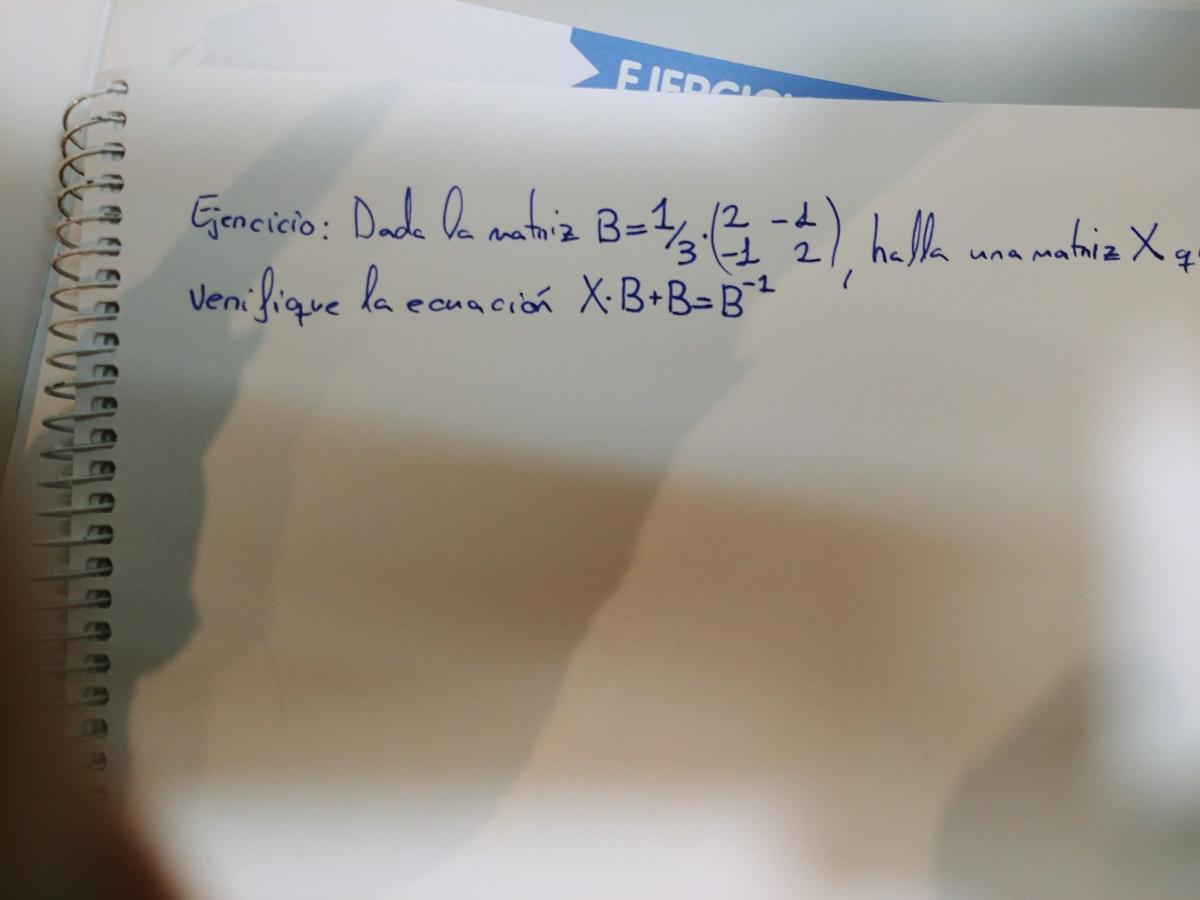 Ejercicio: Dada la matriz B=1/3·(2 -1
-1 2), halla una matriz X
verifique la ecuación X·B+B=B⁻¹